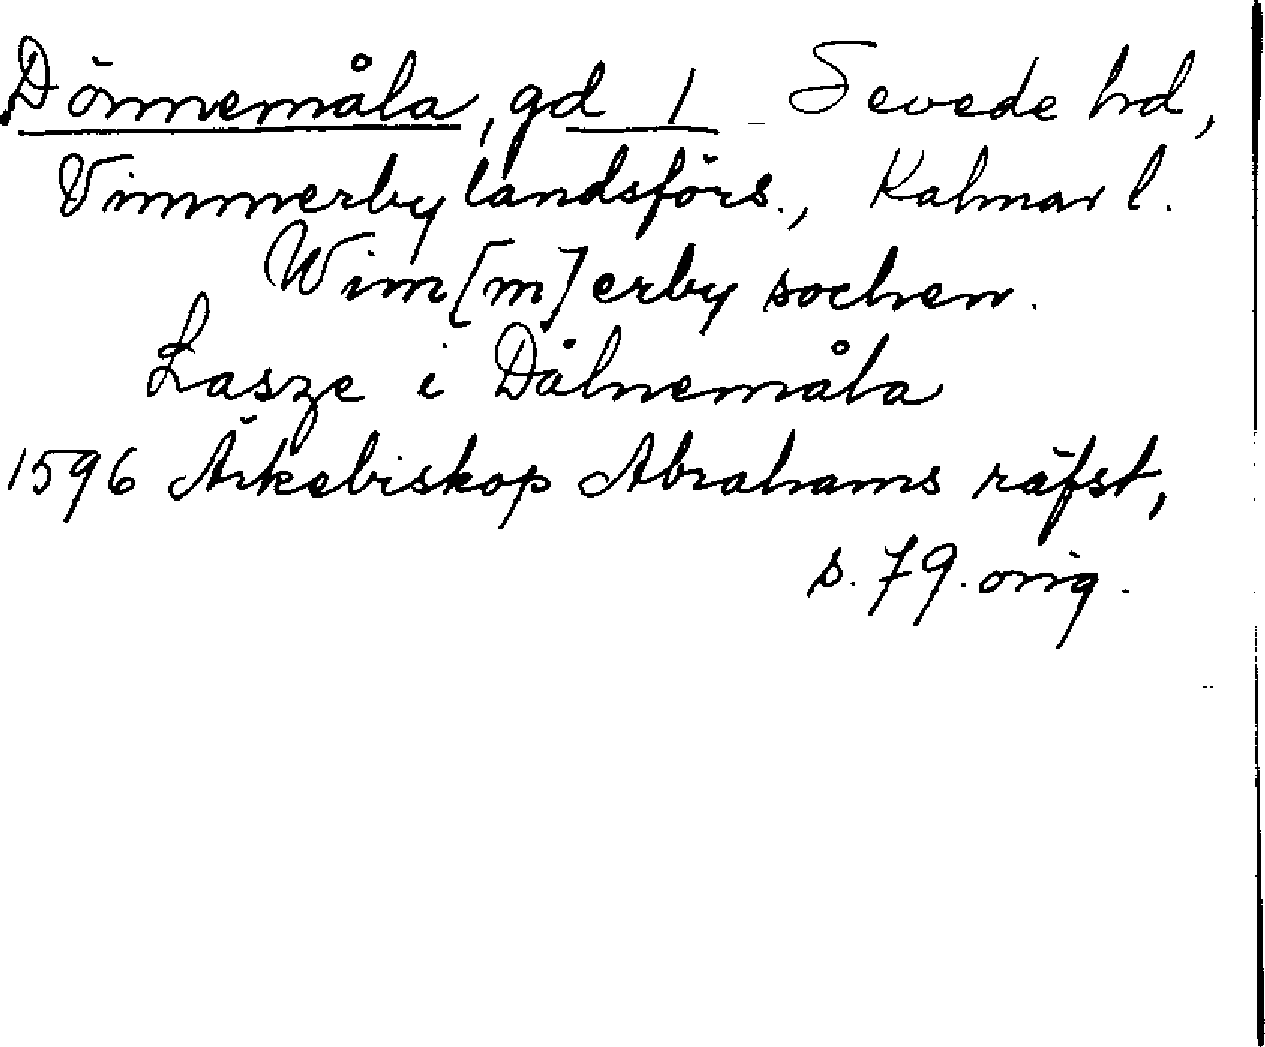 Dönnemåla, gd 1 Sevede hd,
Vimmerby landsförs., Kalmar l.
Wim[m]erby sochen.
Lasze i Dålnemåla
1596 Ärkebiskop Abrahams räfst,
s. 79. orig.